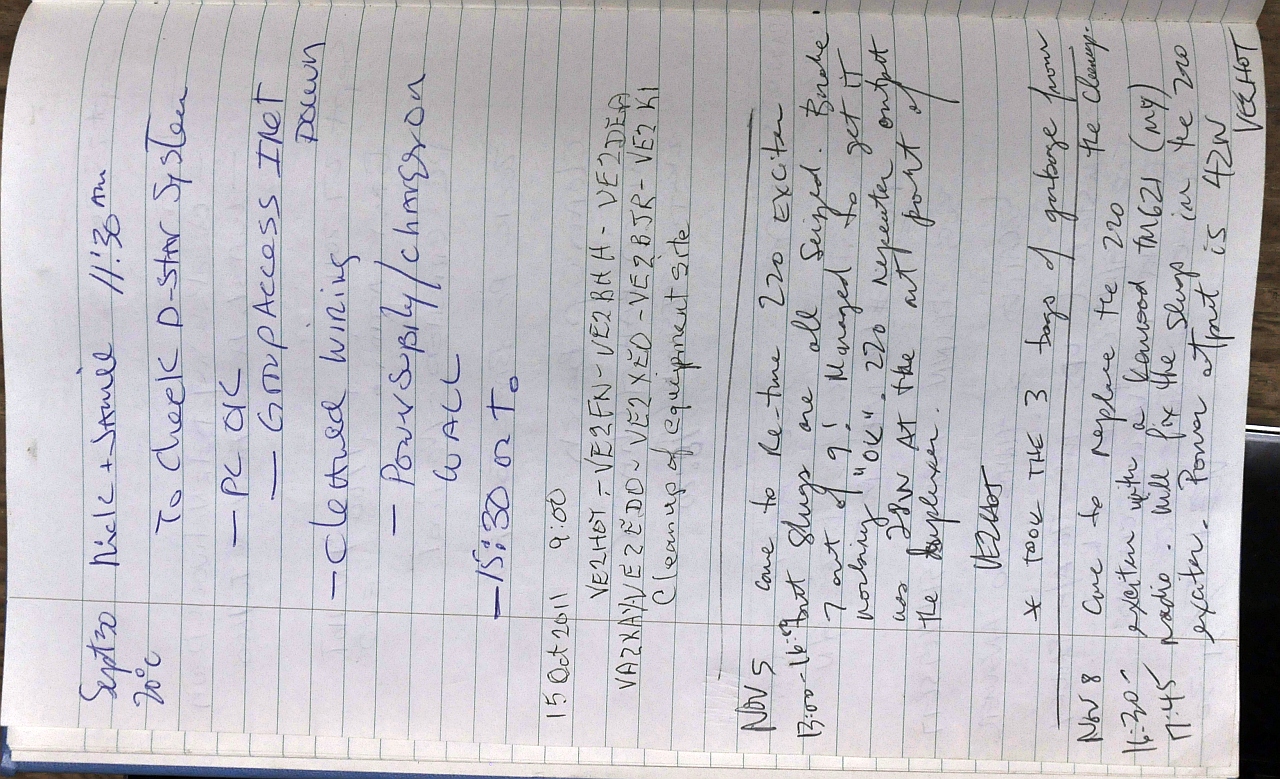 Sept 30 Nick + 11:30 Am
20°C To Check D-Star System
— PC OK
— Group Access INET
Down
— Cleaned wiring
— Power Supply/charger on
WALL
— 15:30 out.
15 Oct 2011 9:00
VE2HOT - VE2FN - VE2BHH - VE2DEA
VA2KAY/VE2EDD - VE2XEO - VE2BJR - VE2KI
Cleanup of equipment site
NOV 5 came to Re-tune 220 Exciter
13:00 - but Slugs are all Seized. Broke
7 out of 9! Managed to get it
working "OK". 220 repeater output
was 28W AT the out port of
the duplexer.
VE2HOT
* TOOK THE 3 bags of garbage from
the Cleanup.
Nov 8 Came to replace the 220
16:30- exciter with a Kenwood TM621 (my)
17:45 radio. Will fix the Slugs in the 220
exciter. Power output is 42W
VE2HOT